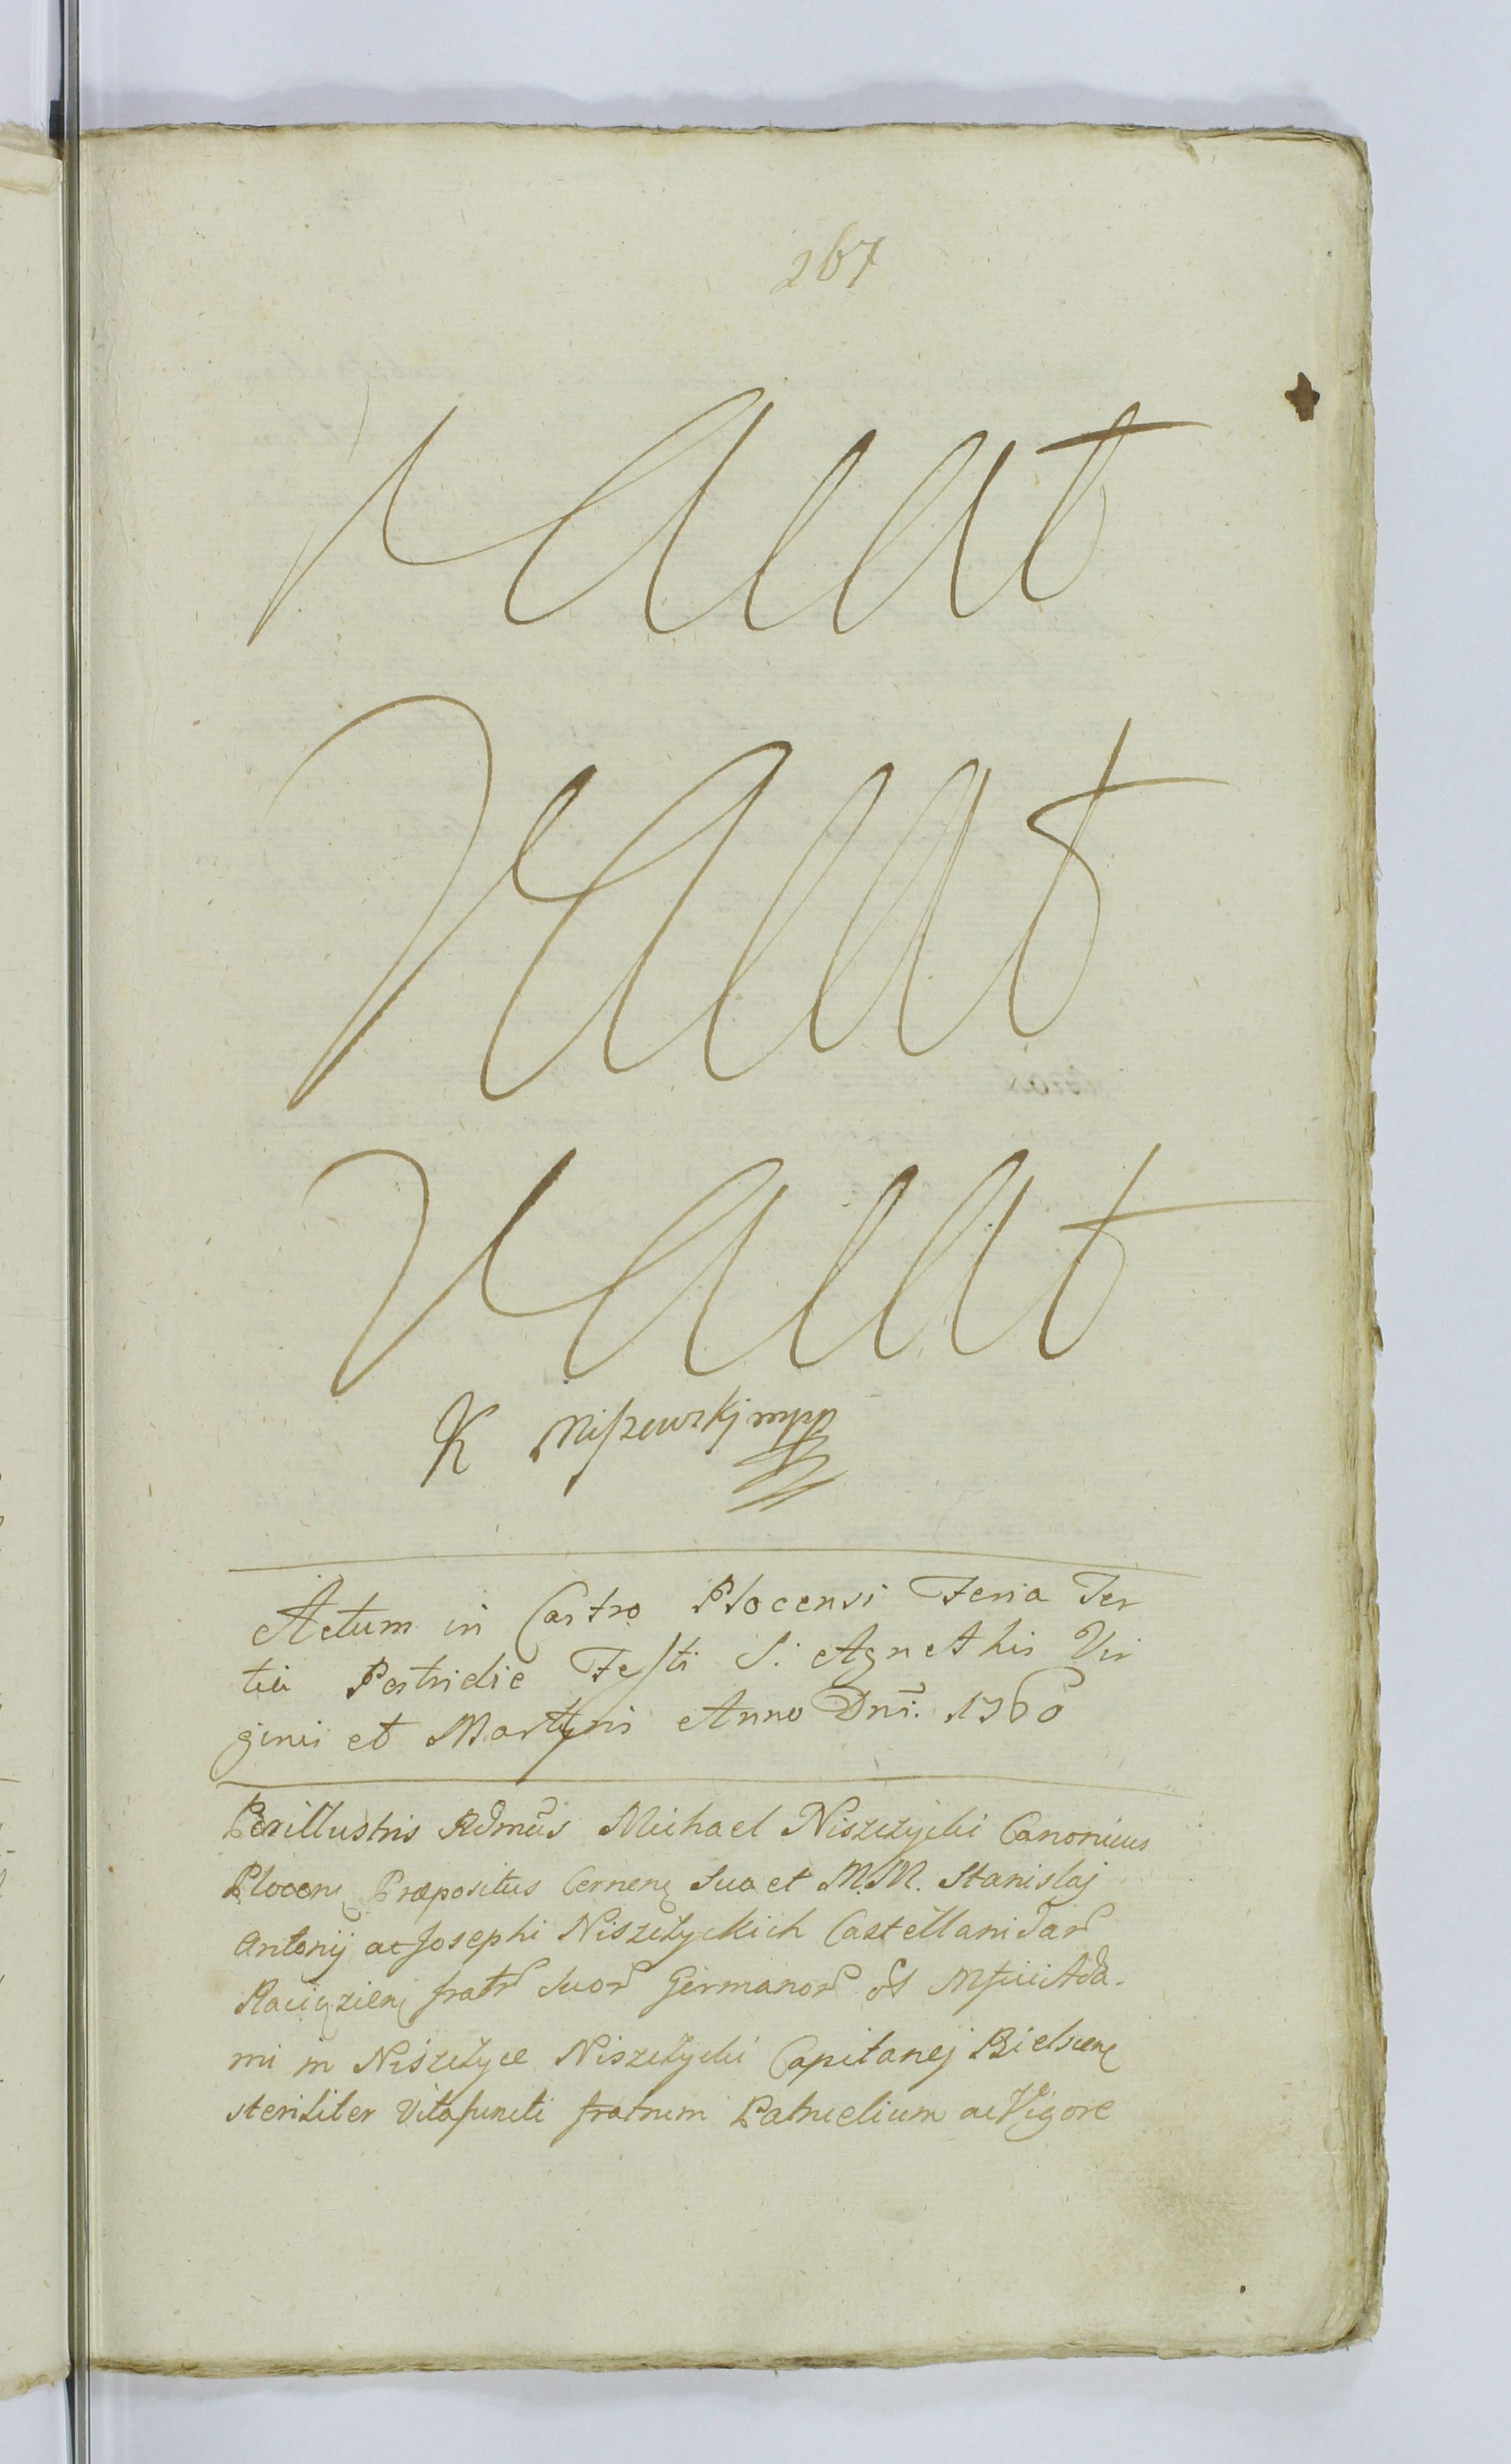 267
Vacat
Vacat
Vacat
K Niszewskj mpp
Actum in Castro Plocensi Feria Ter
tia Postridie Festi S. Agnethis Vir
ginis et Martyris Anno Dni. 1760
Perillustris Rdmus Michael Niszczycki Canonicus
Plocen Præpositus Cernen Suo et M.M. Stanislaj
Antonij ac Josephi Niszczyckich Castellanidar
Raciązien fratr Suor Germanor et Mfici Ada-
mi in Niszczyce Niszczycki Capitanej Bielscen
steriliter Vitafuncti fratrum Patruelium ac Vigore